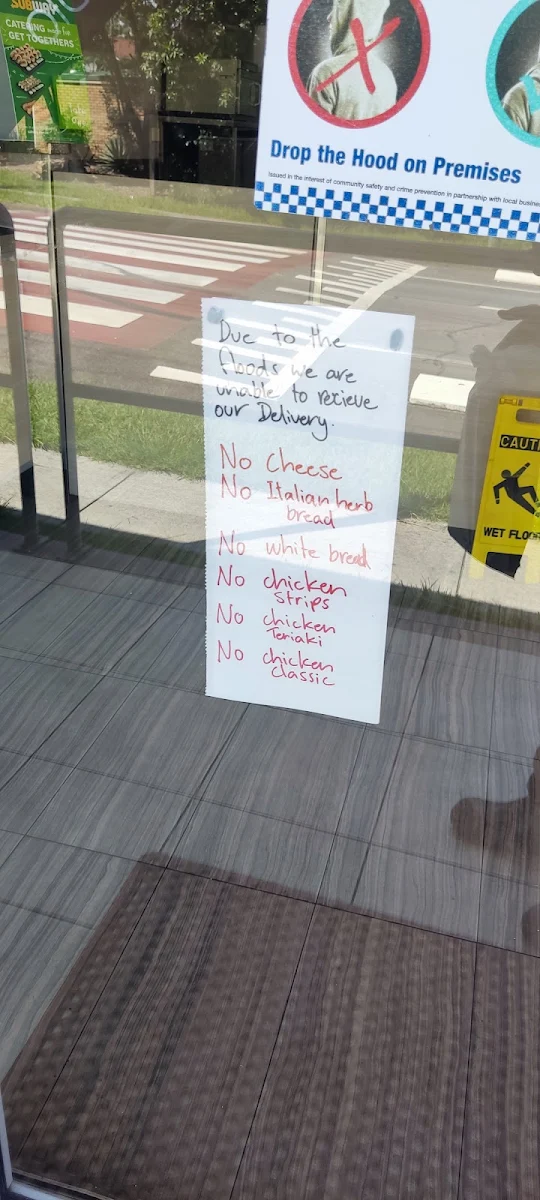 SUBWAY
CATERING
GET TOGETHERS
Drop the Hood on Premises
Issued in the interest of community safety and crime prevention in partnership with local busine
Due to the
floods we are
unable to recieve
our Delivery.
No Cheese
No Italian herb
bread
No white bread
No chicken
strips
No chicken
Teriaki
No chicken
classic
CAUTI
WET FLOO